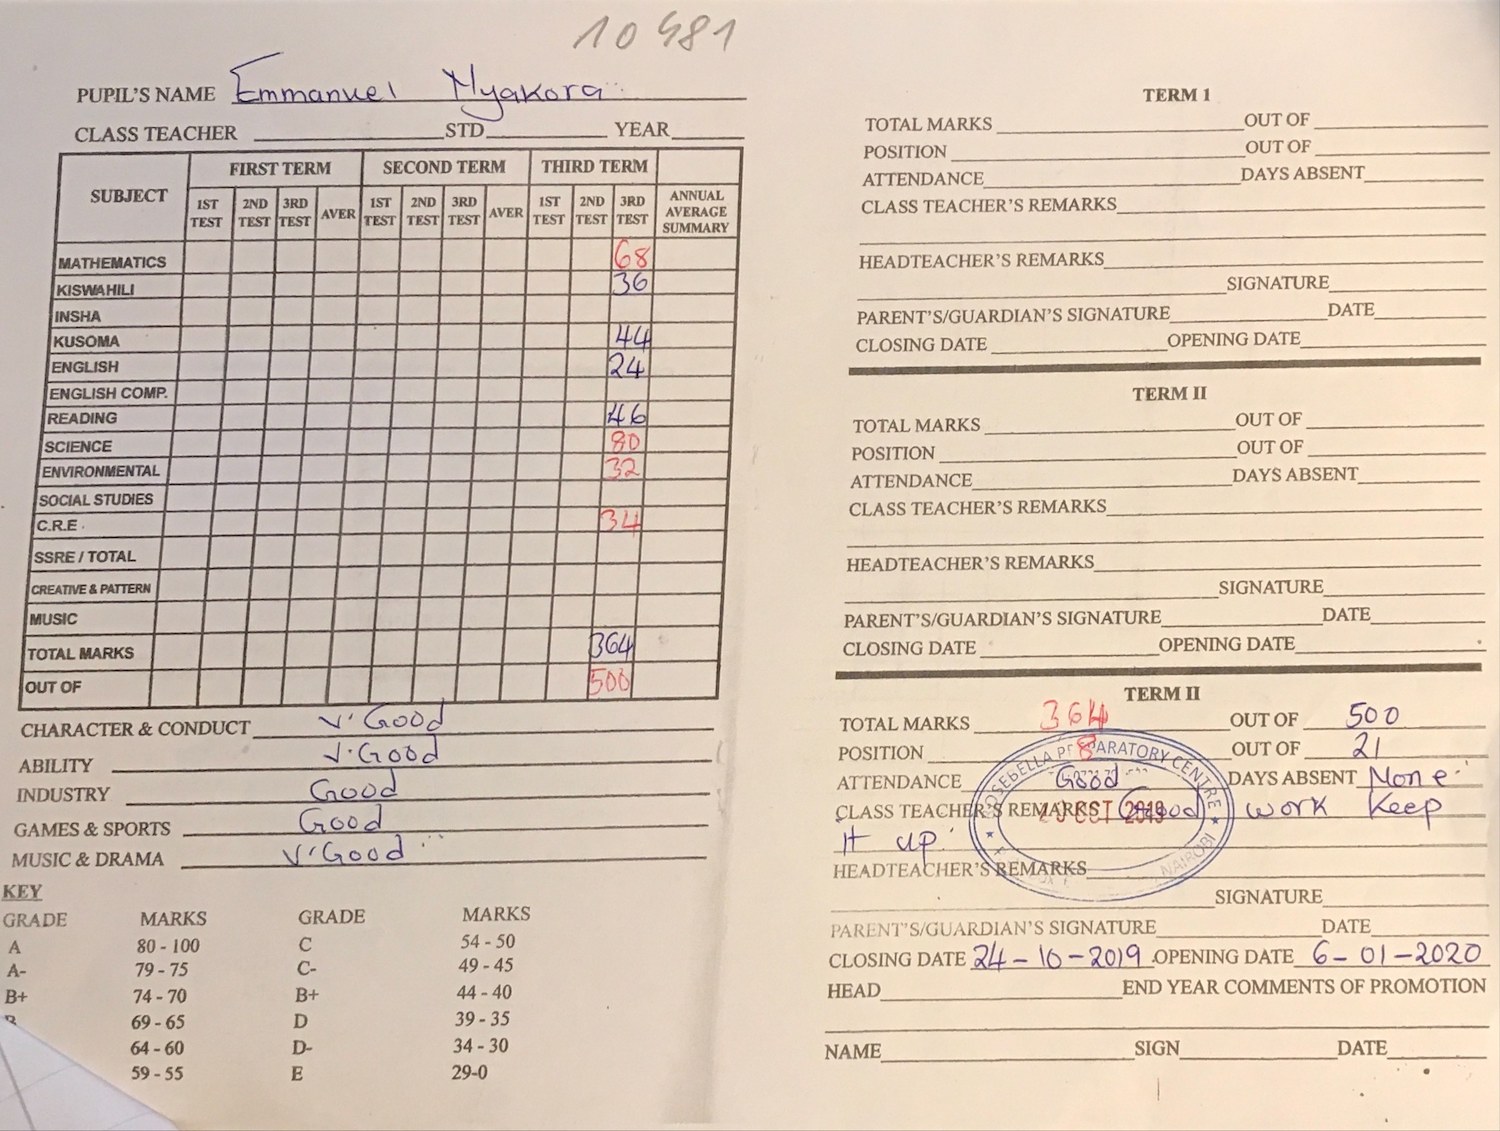 10481
PUPIL'S NAME Emmanuel Nyakora
CLASS TEACHER STD YEAR
SUBJECT FIRST TERM SECOND TERM THIRD TERM
1ST TEST 2ND TEST 3RD TEST AVER 1ST TEST 2ND TEST 3RD TEST AVER 1ST TEST 2ND TEST 3RD TEST ANNUAL AVERAGE SUMMARY
MATHEMATICS 68
KISWAHILI 36
INSHA
KUSOMA 44
ENGLISH 24
ENGLISH COMP.
READING 46
SCIENCE 80
ENVIRONMENTAL 32
SOCIAL STUDIES
C.R.E. 34
SSRE / TOTAL
CREATIVE & PATTERN
MUSIC
TOTAL MARKS 364
OUT OF 500
CHARACTER & CONDUCT V. Good
ABILITY V. Good
INDUSTRY Good
GAMES & SPORTS Good
MUSIC & DRAMA V. Good
KEY
GRADE MARKS GRADE MARKS
A 80 - 100 C 54 - 50
A- 79 - 75 C- 49 - 45
B+ 74 - 70 B+ 44 - 40
69 - 65 D 39 - 35
64 - 60 D- 34 - 30
59 - 55 E 29-0
TERM 1
TOTAL MARKS OUT OF
POSITION OUT OF
ATTENDANCE DAYS ABSENT
CLASS TEACHER'S REMARKS
HEADTEACHER'S REMARKS
SIGNATURE
PARENT'S/GUARDIAN'S SIGNATURE DATE
CLOSING DATE OPENING DATE
TERM II
TOTAL MARKS OUT OF
POSITION OUT OF
ATTENDANCE DAYS ABSENT
CLASS TEACHER'S REMARKS
HEADTEACHER'S REMARKS
SIGNATURE
PARENT'S/GUARDIAN'S SIGNATURE DATE
CLOSING DATE OPENING DATE
TERM II
TOTAL MARKS 364 OUT OF 500
POSITION 8 OUT OF 21
ATTENDANCE Good DAYS ABSENT None
CLASS TEACHER'S REMARKS Good work Keep
It up.
ROSEBELLA PREPARATORY CENTRE
OCT 2019
NAIROBI
HEADTEACHER'S REMARKS
SIGNATURE
PARENT'S/GUARDIAN'S SIGNATURE DATE
CLOSING DATE 24-10-2019 OPENING DATE 6-01-2020
HEAD END YEAR COMMENTS OF PROMOTION
NAME SIGN DATE